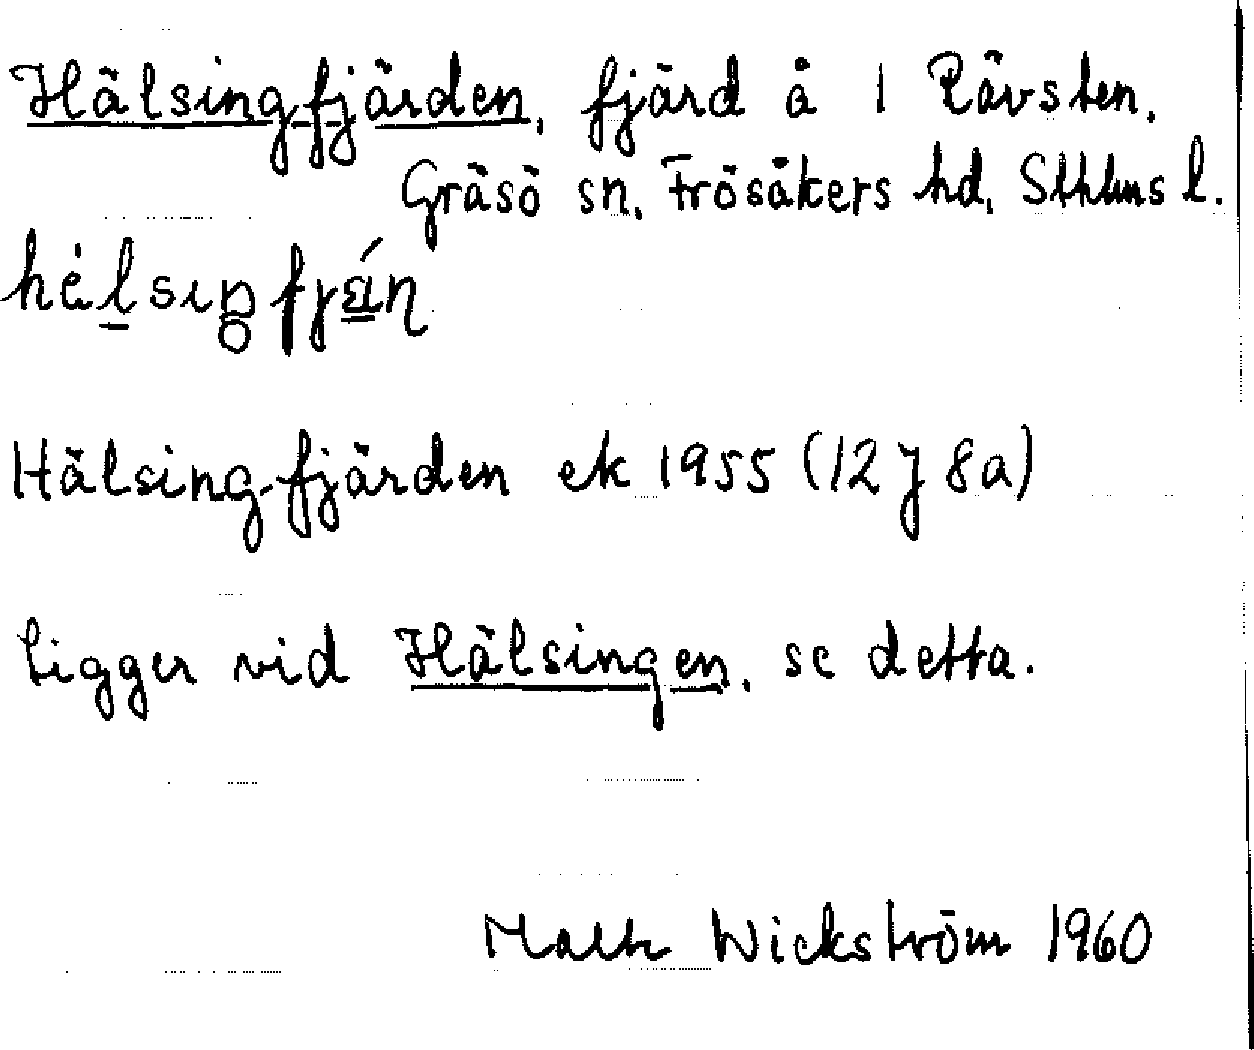 Hälsingfjärden, fjärd å 1 Rävsten,
Gräsö sn, Frösåkers hd, Sthlms l.
Hälsingfjärden ek 1955 (12J 8a)
Ligger vid Hälsingen, se detta.
Wickström 1960